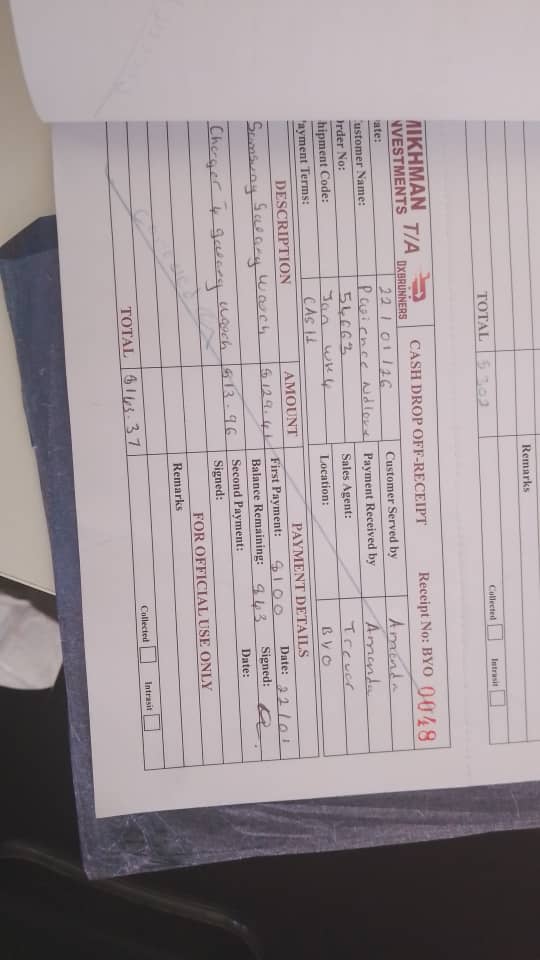 TOTAL $302
Remarks
Collected Intrasit
MIKHMAN T/A
NVESTMENTS DXBRUNNERS
CASH DROP OFF-RECEIPT Receipt No: BYO 0048
ate: 22/01/26 Customer Served by Amanda
ustomer Name: Patience Ndlovu Payment Received by Amanda
rder No: 54663 Sales Agent: Trevor
hipment Code: Jan WK4 Location: BYO
ayment Terms: CASH
DESCRIPTION AMOUNT PAYMENT DETAILS
Samsung Galaxy Watch $129.41 First Payment: $100 Date: 22/01
Balance Remaining: $43 Signed:
Charger 4 galaxy watch $13.96 Second Payment: Date:
Signed:
FOR OFFICIAL USE ONLY
Remarks
TOTAL $143.37
Collected Intrasit